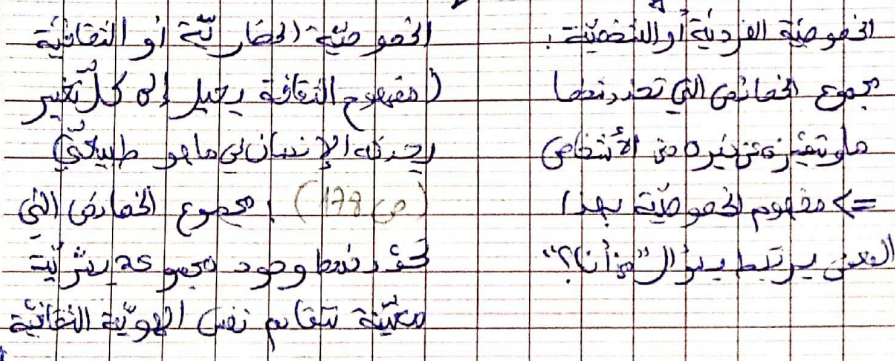 الخصوصيّة الفرديّة أو الشخصيّة :
مجموع الخصائص التي تحدد نمط
ما وتميّزه عن غيره من الأشخاص
=> مفهوم الخصوصيّة بهذا
المعنى يرتبط بسؤال "من أنا؟"
الخصوصيّة الحضاريّة أو الثقافيّة
(مفهوم الثقافة يحيل إلى كلّ تغيير
يحدثه الإنسان في ما هو طبيعيّ)
(ص 178) مجموع الخصائص التي
نمط وجود مجموعة بشريّة
معيّنة تتقاسم نفس الهويّة الثقافيّة